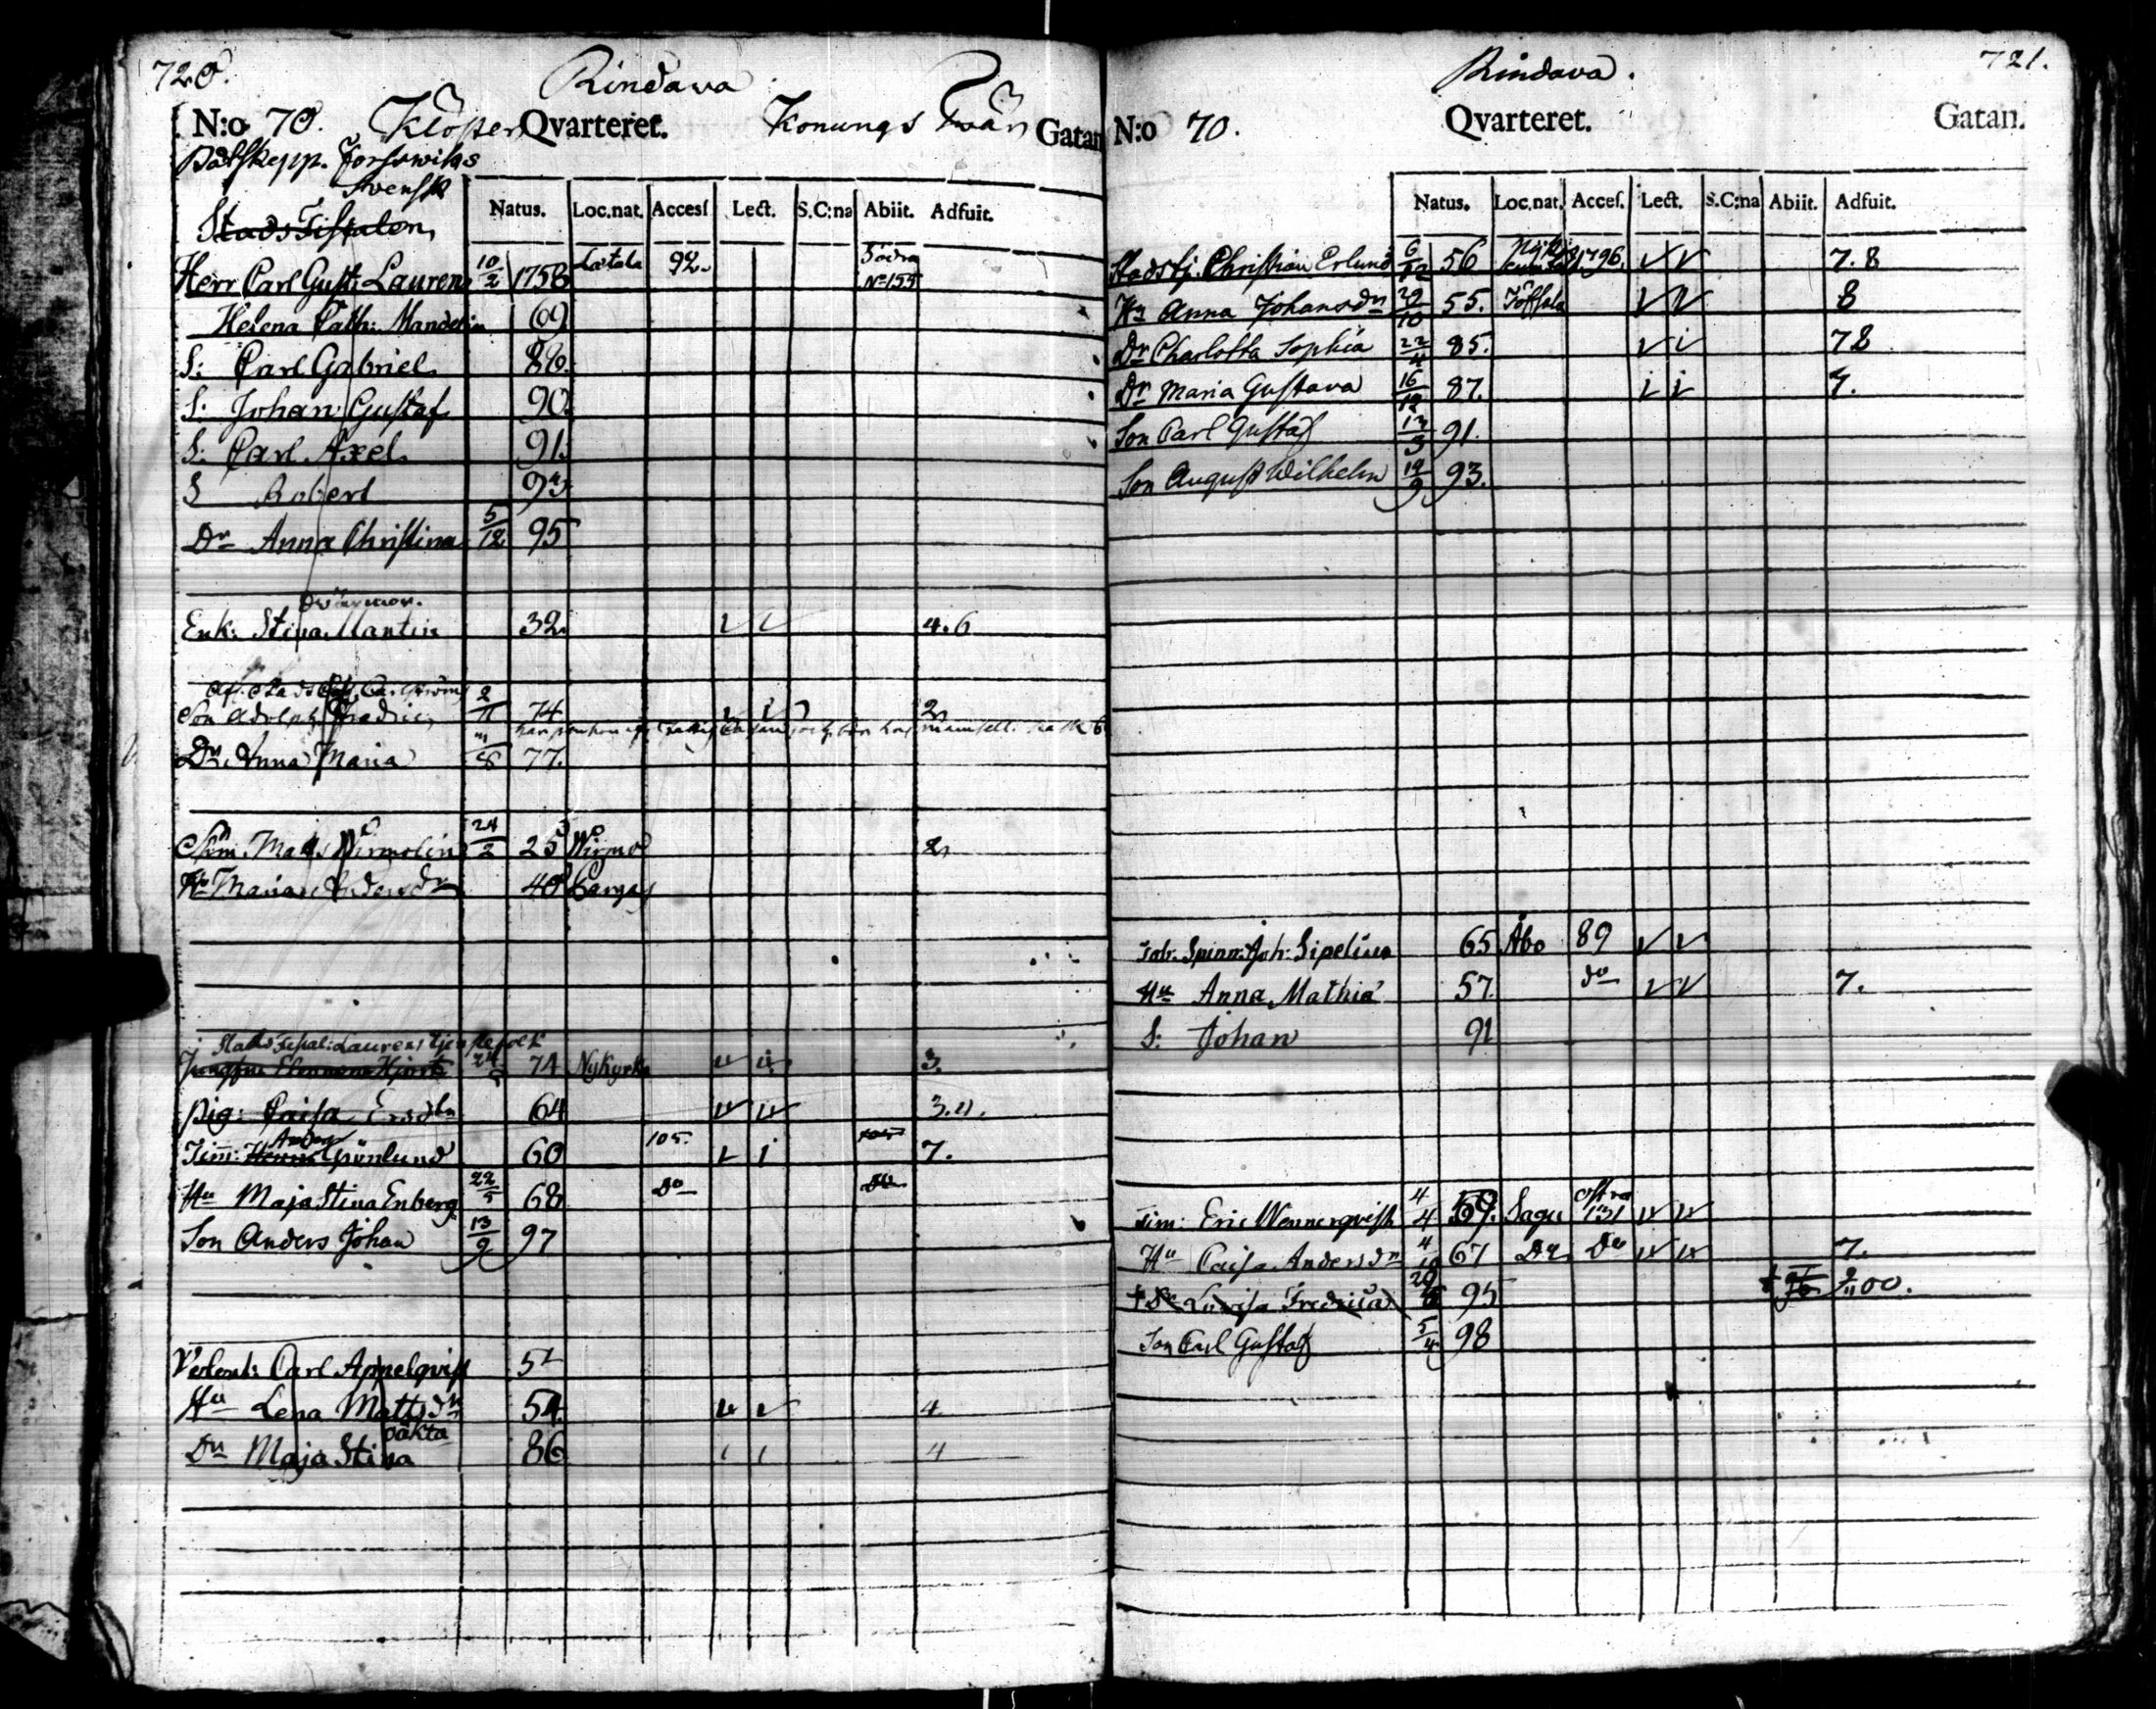 720.
Rindawa
N:o 70. Klöster Qvarteret. Konungs Twär Gatan
Båtskepp. Forsswiks
Svensk
Stads Fiskalen
Natus. Loc.nat. Accesſ Lect. S.C:na Abiit. Adfuit.
Herr Carl Gust: Laurens 10/2 1758 Letala 92. Södra N:155
Helena Cath: Mandelin 69
S: Carl Gabriel 86.
S: Johan Gustaf 90.
S: Carl Axel 91.
S Robert 93
Dr Anna Christina 5/12 95
Svärmor.
Enk. Stina Mantin 32. 4. 6
Son Adolph Fredric 2/11 74 2
Dr. Anna Maria 8 77.
Mats Wirmolin 24/2 25 Wirmo 2
Hu Maria Andersdr 40 Pargas
Stads Fiskal: Laurens tjenstefolk
Jungfru Hjort 24 74 Nykyrka 3.
pig: Caisa Ersdtr 64 3. 4.
Anders
Tim: Grönlund 60 105. 105 7.
Hu Maja Stina Enberg 22/5 68 Do Do
Son Anders Johan 13/9 97
Carl Appelqvist 52
Hu Lena Mattsdr 54. 4
oäkta
Dr Maja Stina 86 4
721.
Rindava.
N:o 70. Qvarteret. Gatan.
Natus. Loc.nat. Acceſ. Lect. S.C:na Abiit. Adfuit.
Stadstj. Christian Erlund 6/12 56 1796. 7. 8
Hu Anna Johansdr 29/10 55. Töfsala 8
Dr Charlotta Sophia 22/4 85. 7 8
Dr Maria Gustava 16/12 87. 7.
Son Carl Gustaf 13/3 91.
Son August Wilhelm 19/9 93.
Tob. Spinn: Joh: Sipelius 65 Åbo 89
Hu Anna Mathiæ 57. do 7.
S: Johan 91
Tim: Eric Wennerqvist 4/4 59. Sagu Östra 131
Hu Caisa Andersdr 4/10 67 Do Do 7.
† Dr Lovisa Fredrica 29 95 † 9/11 00.
Son Carl Gustaf 5/4 98